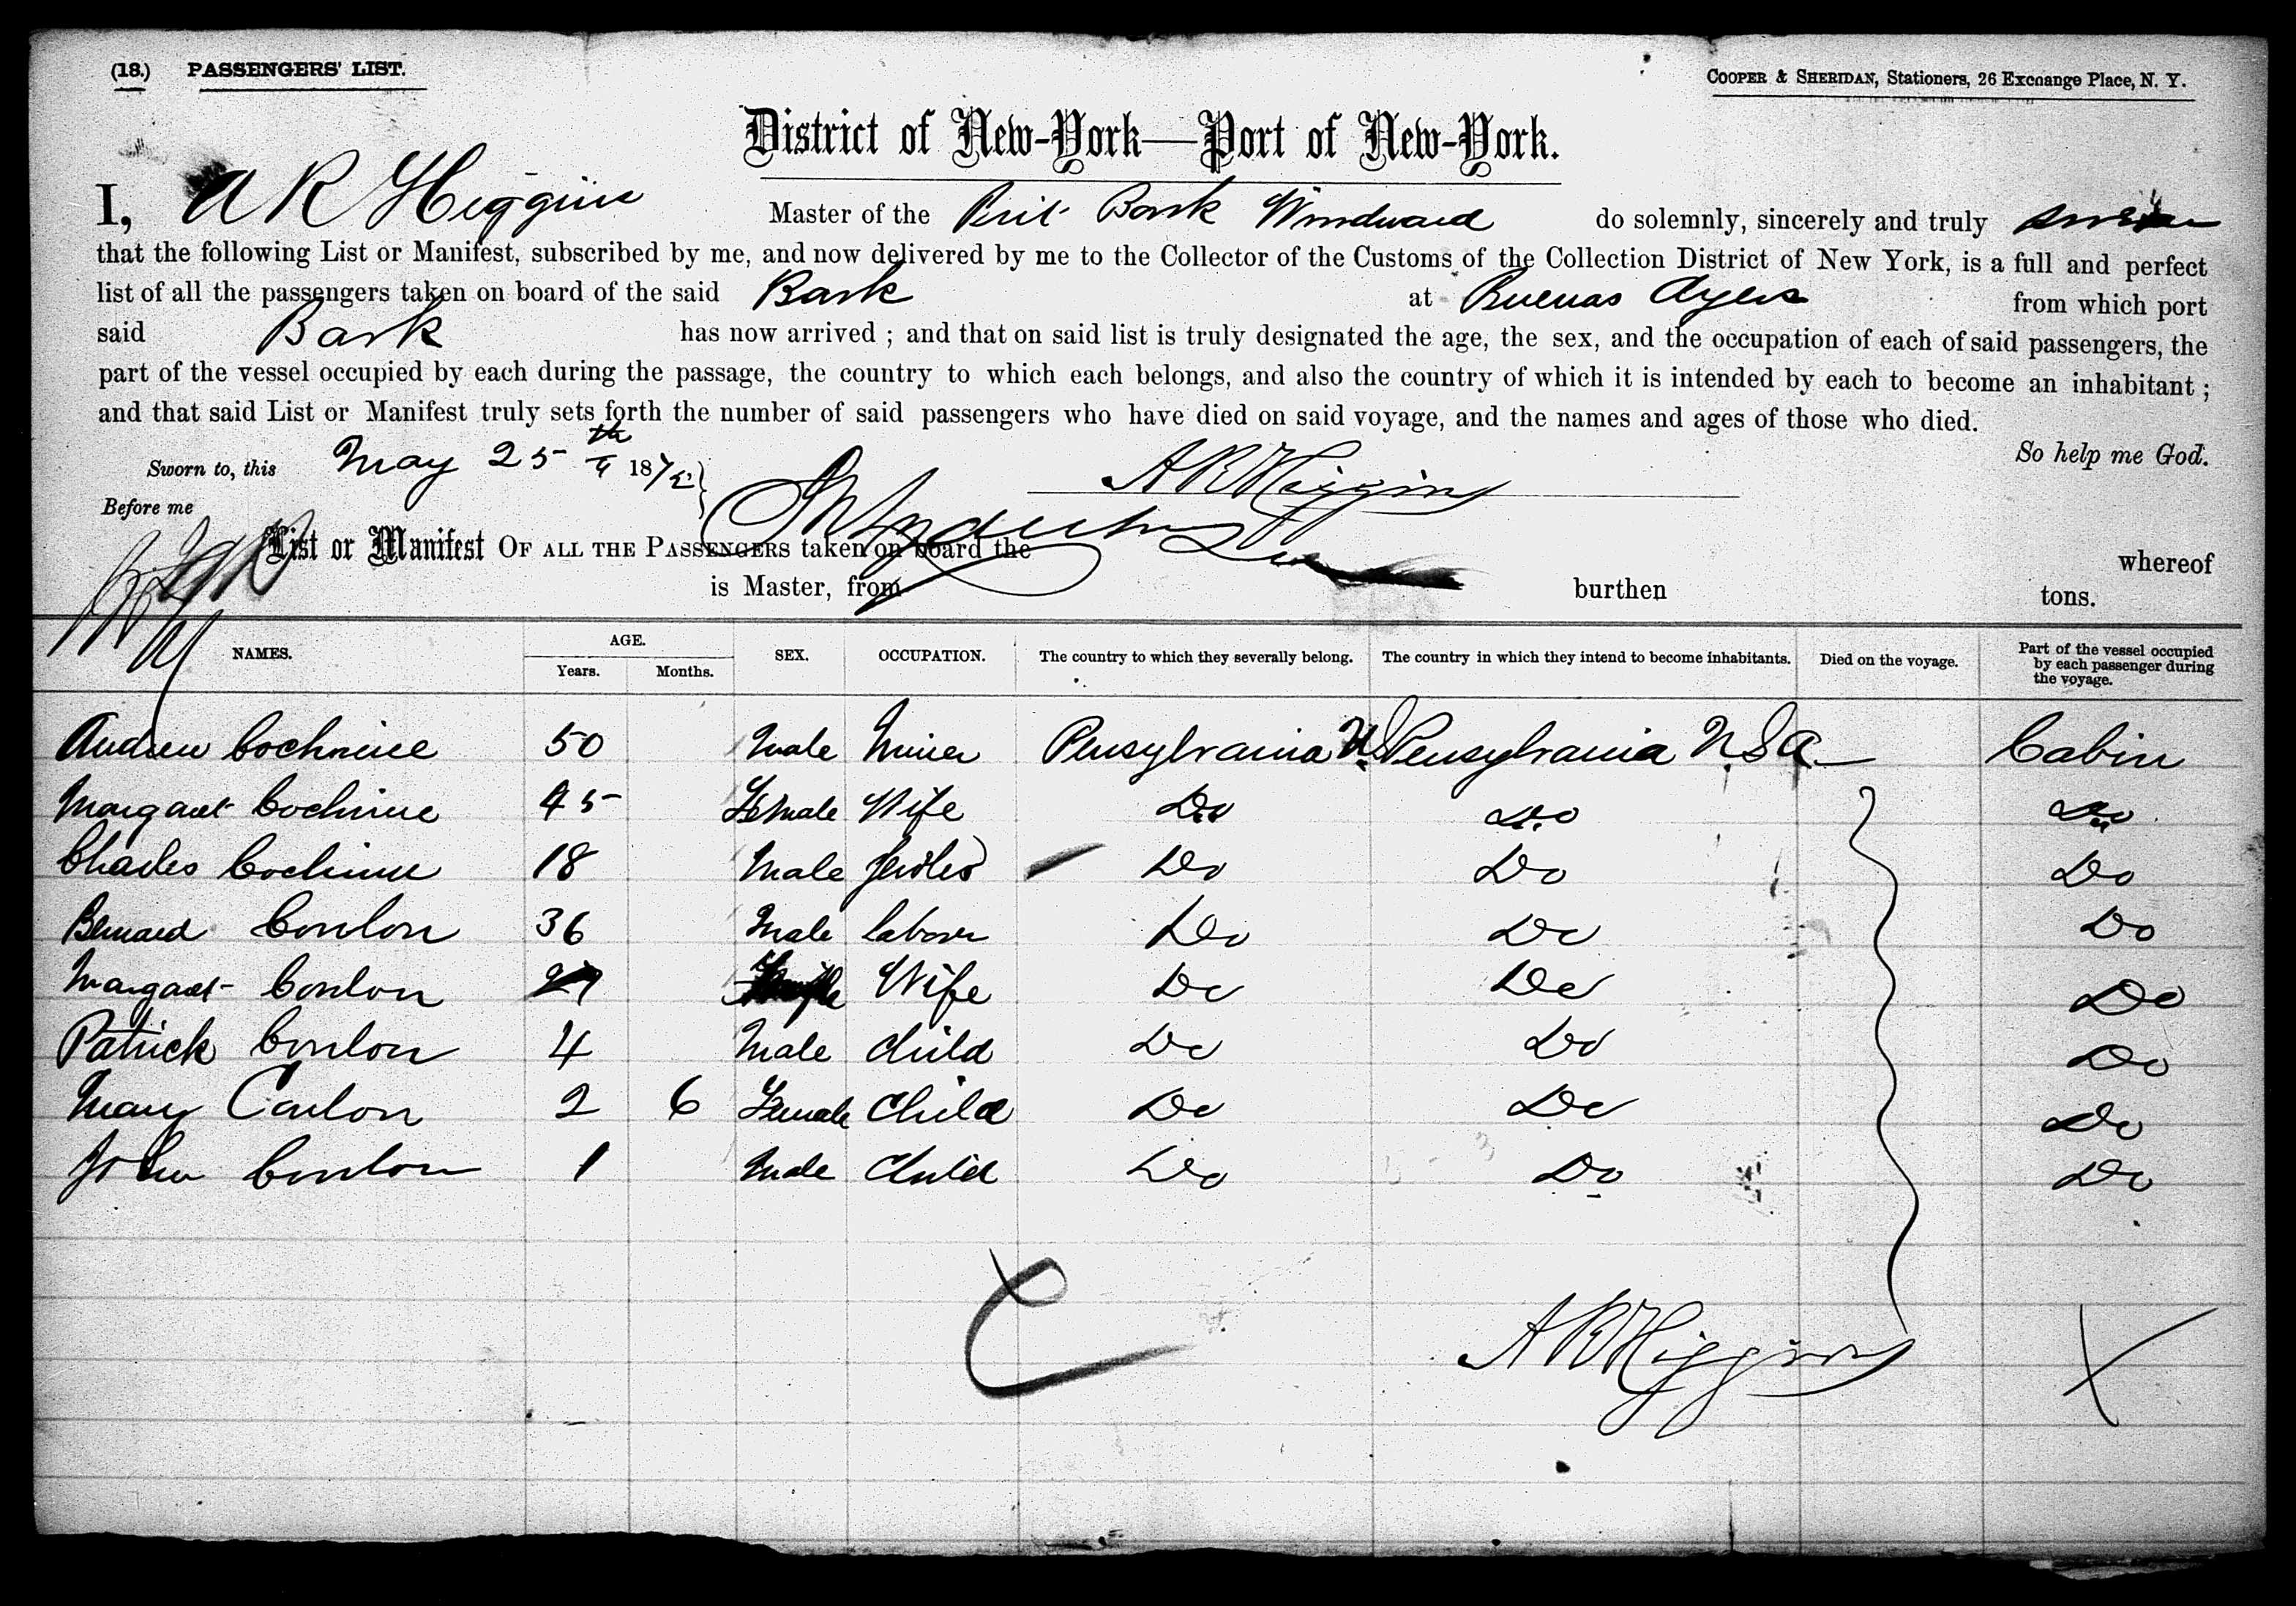 (18.) PASSENGERS' LIST.
COOPER & SHERIDAN, Stationers, 26 Exchange Place, N. Y.
District of New-York—Port of New-York.
I, A R Higgins Master of the Brit Bark Windward do solemnly, sincerely and truly swear
that the following List or Manifest, subscribed by me, and now delivered by me to the Collector of the Customs of the Collection District of New York, is a full and perfect
list of all the passengers taken on board of the said Bark at Buenas Ayers from which port
said Bark has now arrived ; and that on said list is truly designated the age, the sex, and the occupation of each of said passengers, the
part of the vessel occupied by each during the passage, the country to which each belongs, and also the country of which it is intended by each to become an inhabitant ;
and that said List or Manifest truly sets forth the number of said passengers who have died on said voyage, and the names and ages of those who died.
So help me God.
Sworn to, this May 25th 187
A R Higgins
Before me
List or Manifest OF ALL THE PASSENGERS taken on board the whereof
is Master, from burthen tons.
NAMES. AGE. Years. Months. SEX. OCCUPATION. The country to which they severally belong. The country in which they intend to become inhabitants. Died on the voyage. Part of the vessel occupied by each passenger during the voyage.
Andrew Cochrine 50 Male Miner Pensylvania U.S Pensylvania U S A Cabin
Margaret Cochrine 45 Female Wife Do Do Do
Charles Cochrine 18 Male Do Do Do
Bernard Conlon 36 Male labour Do Do Do
Margaret Conlon Wife Do Do Do
Patrick Conlon 4 Male child Do Do Do
Mary Conlon 2 6 Female Child Do Do Do
John Conlon 1 Male Child Do Do Do
A R Higgins